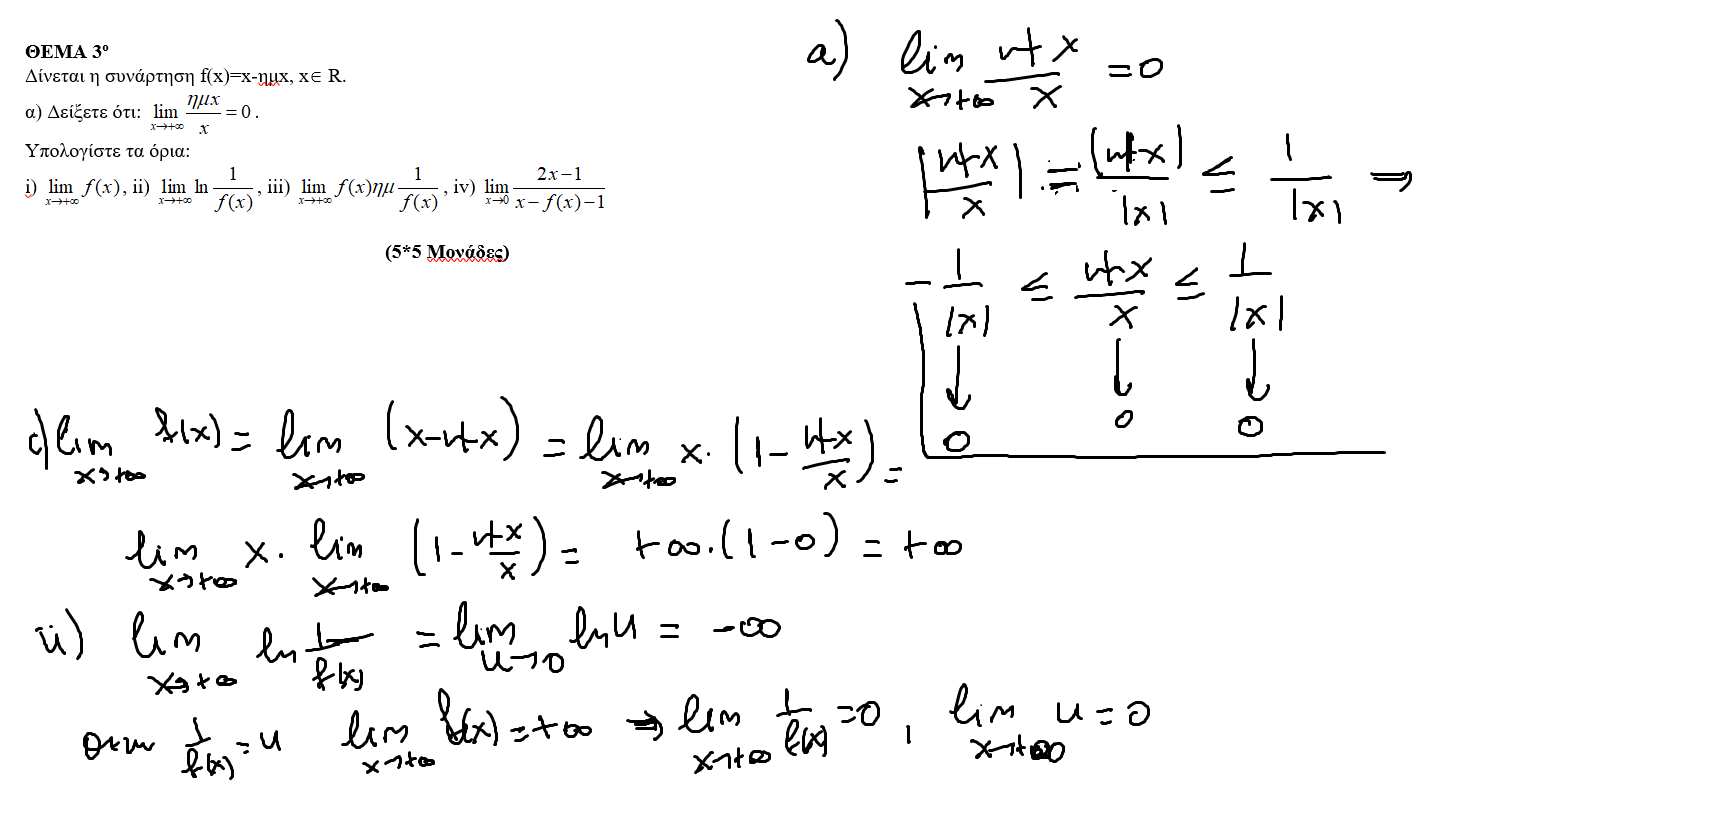 ΘΕΜΑ 3º
Δίνεται η συνάρτηση f(x)=x-ημx, x∈ R.
α) Δείξετε ότι: lim_{x→+∞} ημx/x = 0 .
Υπολογίστε τα όρια:
i) lim_{x→+∞} f(x), ii) lim_{x→+∞} ln 1/f(x), iii) lim_{x→+∞} f(x)ημ 1/f(x), iv) lim_{x→0} (2x−1)/(x−f(x)−1)
(5*5 Μονάδες)
a) lim_{x→+∞} ημx/x = 0
|ημx/x| = |ημx|/|x| ≤ 1/|x| ⇒
-1/|x| ≤ ημx/x ≤ 1/|x|
↓ ↓ ↓
0 0 0
i) lim_{x→+∞} f(x) = lim_{x→+∞} (x-ημx) = lim_{x→+∞} x·(1-ημx/x) =
lim_{x→+∞} x· lim_{x→+∞} (1-ημx/x) = +∞·(1-0) = +∞
ii) lim_{x→+∞} ln 1/f(x) = lim_{u→0} ln u = -∞
θετω 1/f(x) = u lim_{x→+∞} f(x) = +∞ ⇒ lim_{x→+∞} 1/f(x) = 0 , lim_{x→+∞} u = 0